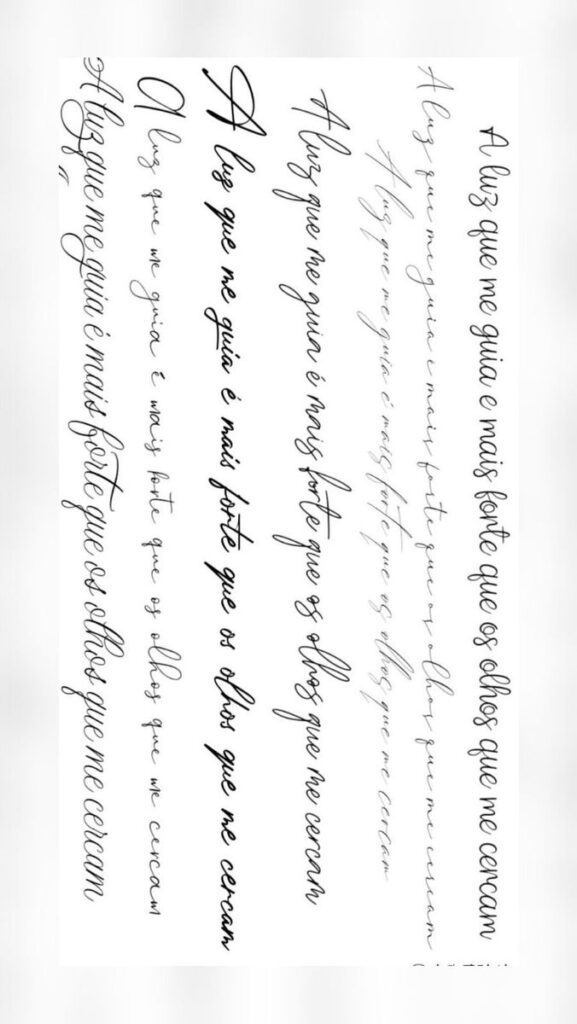 A luz que me guia e mais forte que os olhos que me cercam
A luz que me guia e mais forte que os olhos que me cercam
A luz que me guia é mais forte que os olhos que me cercam
A luz que me guia é mais forte que os olhos que me cercam
A luz que me guia é mais forte que os olhos que me cercam
A luz que me guia é mais forte que os olhos que me cercam
A luz que me guia é mais forte que os olhos que me cercam